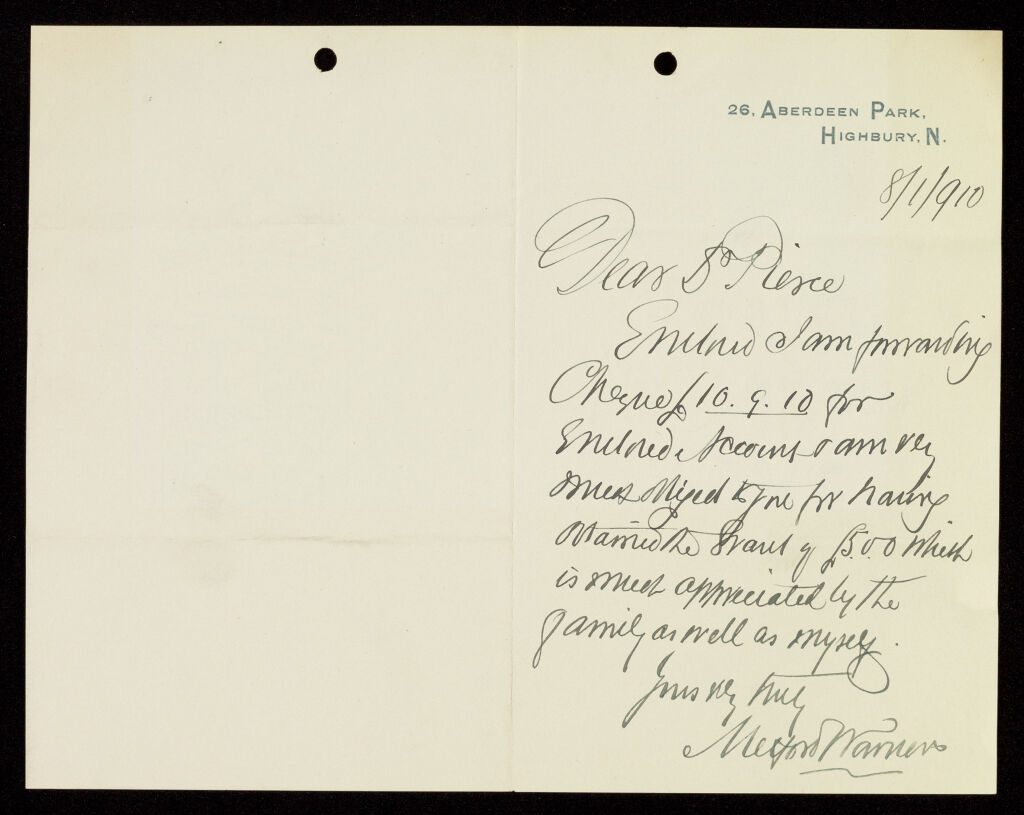 26, ABERDEEN PARK,
HIGHBURY, N.
8/1/910
Dear Dr Pierce
Enclosed I am forwarding
Cheque £10. 9. 10 for
Enclosed Account & am very
much obliged to you for having
obtained the Grant of £5.0.0 which
is much appreciated by the
family as well as myself.
Yours very truly